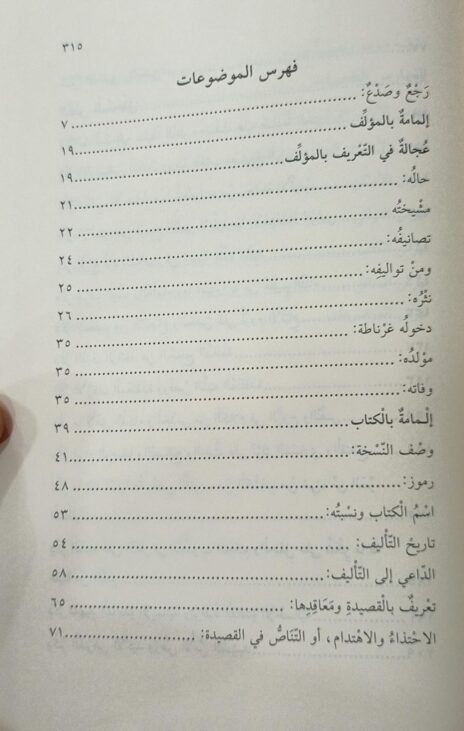 ٣١٥
فهرس الموضوعات
رَجْعٌ وصَدْعٌ: ................ ٧
إلمامةٌ بالمؤلِّف ................ ١٩
عُجالةٌ في التّعْريف بالمؤلِّف ................ ١٩
حالُه: ................ ٢١
مشْيختُه ................ ٢٢
تصانيفُه: ................ ٢٤
ومنْ تواليفِه: ................ ٢٥
نثْرُه: ................ ٢٦
دخولُه غرْناطة: ................ ٣٥
موْلدُه: ................ ٣٥
وفاته: ................ ٣٥
إلْمامةٌ بالْكتاب ................ ٣٩
وصْف النّسْخة: ................ ٤١
رموز: ................ ٤٨
اسْمُ الْكتاب ونسْبتُه: ................ ٥٣
تاريخ التّأْليف: ................ ٥٤
الدّاعي إلى التّأْليف: ................ ٥٨
تعْريفٌ بالْقصيدةِ ومَعَاقِدِها: ................ ٦٥
الاحْتذاءُ والاهْتدام، أو التّنَاصُّ في القصيدة: ................ ٧١